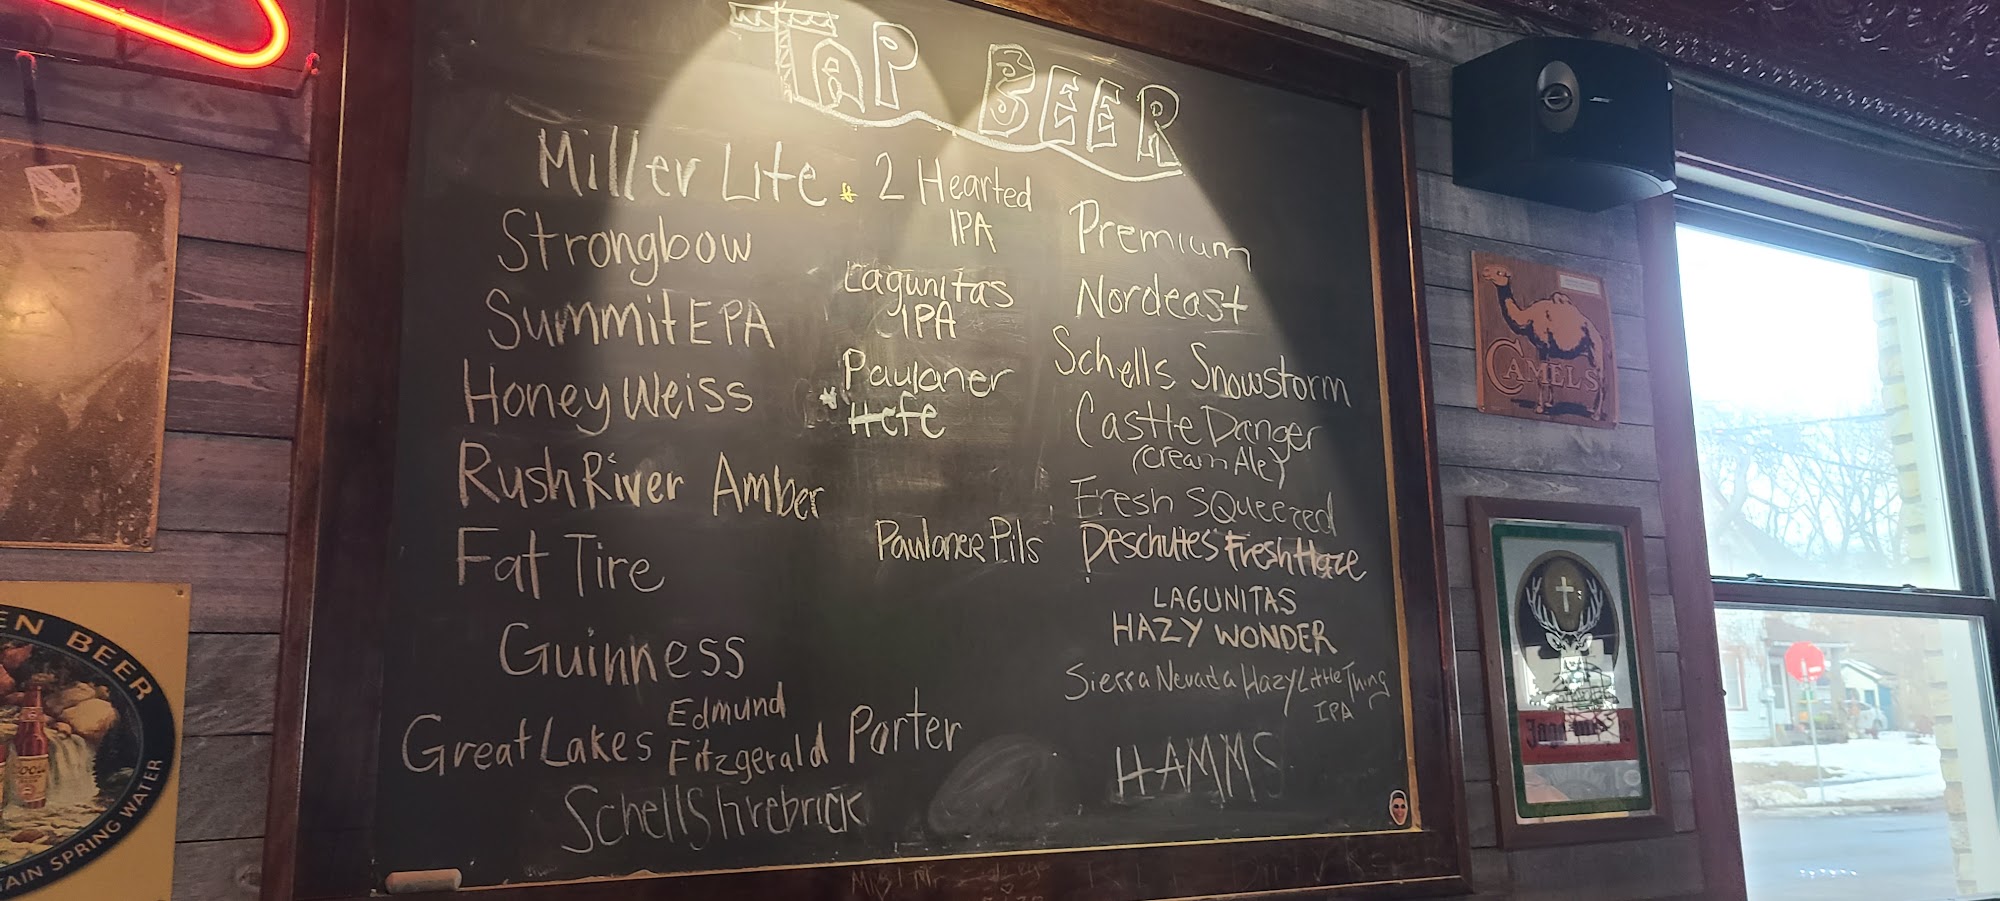 TAP BEER
Miller Lite
Strongbow
Summit EPA
Honey Weiss
Rush River Amber
Fat Tire
Guinness
Great Lakes Edmund
Fitzgerald Porter
Schells firebrick
* 2 Hearted
IPA
Lagunitas
IPA
Paulaner
* Hefe
Paulaner Pils
Premium
Nordeast
Schells Snowstorm
Castle Danger
(Cream Ale)
Fresh Squeezed
Deschutes Fresh Haze
LAGUNITAS
HAZY WONDER
Sierra Nevada Hazy Little Thing
IPA
HAMMS
CAMELS
EN BEER
TAIN SPRING WATER